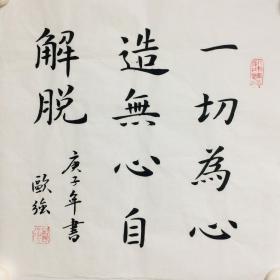 一切為心
造無心自
解脱
庚子年書
歐強